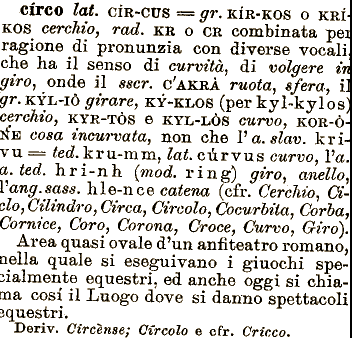 círco lat. CÍR-CUS = gr. KÍR-KOS o KRÍ-
KOS cerchio, rad. KR o CR combinata per
ragione di pronunzia con diverse vocali,
che ha il senso di curvità, di volgere in
giro, onde il sscr. C'AKRÀ ruota, sfera, il
gr. KÝL-IÔ girare, KÝ-KLOS (per kyl-kylos)
cerchio, KYR-TÒS e KYL-LÒS curvo, KOR-Ò-
NE cosa incurvata, non che l'a. slav. kri-
vu = ted. kru-mm, lat. cúrvus curvo, l'a.
a. ted. hri-nh (mod. ring) giro, anello,
l'ang. sass. hle-nce catena (cfr. Cerchio, Ci-
clo, Cilindro, Circa, Circolo, Cocurbita, Corba,
Cornice, Coro, Corona, Croce, Curvo, Giro).
Area quasi ovale d'un anfiteatro romano,
nella quale si eseguivano i giuochi spe-
cialmente equestri, ed anche oggi si chia-
ma cosí il Luogo dove si danno spettacoli
equestri.
Deriv. Circènse; Círcolo e cfr. Cricco.